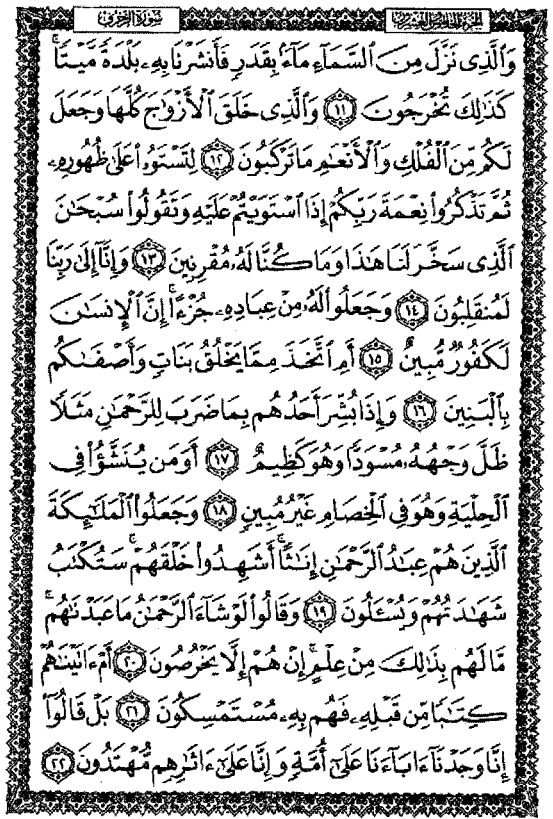 الجزء الخامس والعشرون
سورة الزخرف
وَٱلَّذِى نَزَّلَ مِنَ ٱلسَّمَآءِ مَآءَۢ بِقَدَرٍ فَأَنشَرْنَا بِهِۦ بَلْدَةً مَّيْتًا ۚ
كَذَٰلِكَ تُخْرَجُونَ ﴿١١﴾ وَٱلَّذِى خَلَقَ ٱلْأَزْوَٰجَ كُلَّهَا وَجَعَلَ
لَكُم مِّنَ ٱلْفُلْكِ وَٱلْأَنْعَٰمِ مَا تَرْكَبُونَ ﴿١٢﴾ لِتَسْتَوُۥا۟ عَلَىٰ ظُهُورِهِۦ
ثُمَّ تَذْكُرُوا۟ نِعْمَةَ رَبِّكُمْ إِذَا ٱسْتَوَيْتُمْ عَلَيْهِ وَتَقُولُوا۟ سُبْحَٰنَ
ٱلَّذِى سَخَّرَ لَنَا هَٰذَا وَمَا كُنَّا لَهُۥ مُقْرِنِينَ ﴿١٣﴾ وَإِنَّآ إِلَىٰ رَبِّنَا
لَمُنقَلِبُونَ ﴿١٤﴾ وَجَعَلُوا۟ لَهُۥ مِنْ عِبَادِهِۦ جُزْءًا ۚ إِنَّ ٱلْإِنسَٰنَ
لَكَفُورٌ مُّبِينٌ ﴿١٥﴾ أَمِ ٱتَّخَذَ مِمَّا يَخْلُقُ بَنَاتٍ وَأَصْفَىٰكُم
بِٱلْبَنِينَ ﴿١٦﴾ وَإِذَا بُشِّرَ أَحَدُهُم بِمَا ضَرَبَ لِلرَّحْمَٰنِ مَثَلًا
ظَلَّ وَجْهُهُۥ مُسْوَدًّا وَهُوَ كَظِيمٌ ﴿١٧﴾ أَوَمَن يُنَشَّؤُا۟ فِى
ٱلْحِلْيَةِ وَهُوَ فِى ٱلْخِصَامِ غَيْرُ مُبِينٍ ﴿١٨﴾ وَجَعَلُوا۟ ٱلْمَلَٰٓئِكَةَ
ٱلَّذِينَ هُمْ عِبَٰدُ ٱلرَّحْمَٰنِ إِنَٰثًا ۚ أَشَهِدُوا۟ خَلْقَهُمْ ۚ سَتُكْتَبُ
شَهَٰدَتُهُمْ وَيُسْـَٔلُونَ ﴿١٩﴾ وَقَالُوا۟ لَوْ شَآءَ ٱلرَّحْمَٰنُ مَا عَبَدْنَٰهُم ۗ
مَّا لَهُم بِذَٰلِكَ مِنْ عِلْمٍ ۖ إِنْ هُمْ إِلَّا يَخْرُصُونَ ﴿٢٠﴾ أَمْ ءَاتَيْنَٰهُمْ
كِتَٰبًا مِّن قَبْلِهِۦ فَهُم بِهِۦ مُسْتَمْسِكُونَ ﴿٢١﴾ بَلْ قَالُوٓا۟
إِنَّا وَجَدْنَآ ءَابَآءَنَا عَلَىٰٓ أُمَّةٍ وَإِنَّا عَلَىٰٓ ءَاثَٰرِهِم مُّهْتَدُونَ ﴿٢٢﴾